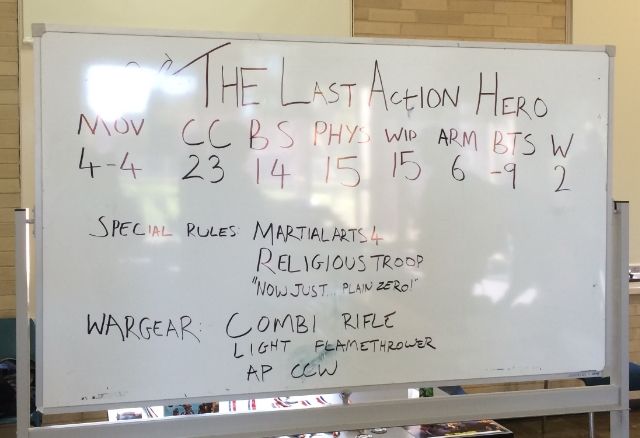 THE LAST ACTION HERO
MOV CC BS PHYS WIP ARM BTS W
4-4 23 14 15 15 6 -9 2
SPECIAL RULES: MARTIAL ARTS 4
RELIGIOUS TROOP
"NOW JUST... PLAIN ZERO!"
WARGEAR: COMBI RIFLE
LIGHT FLAMETHROWER
AP CCW